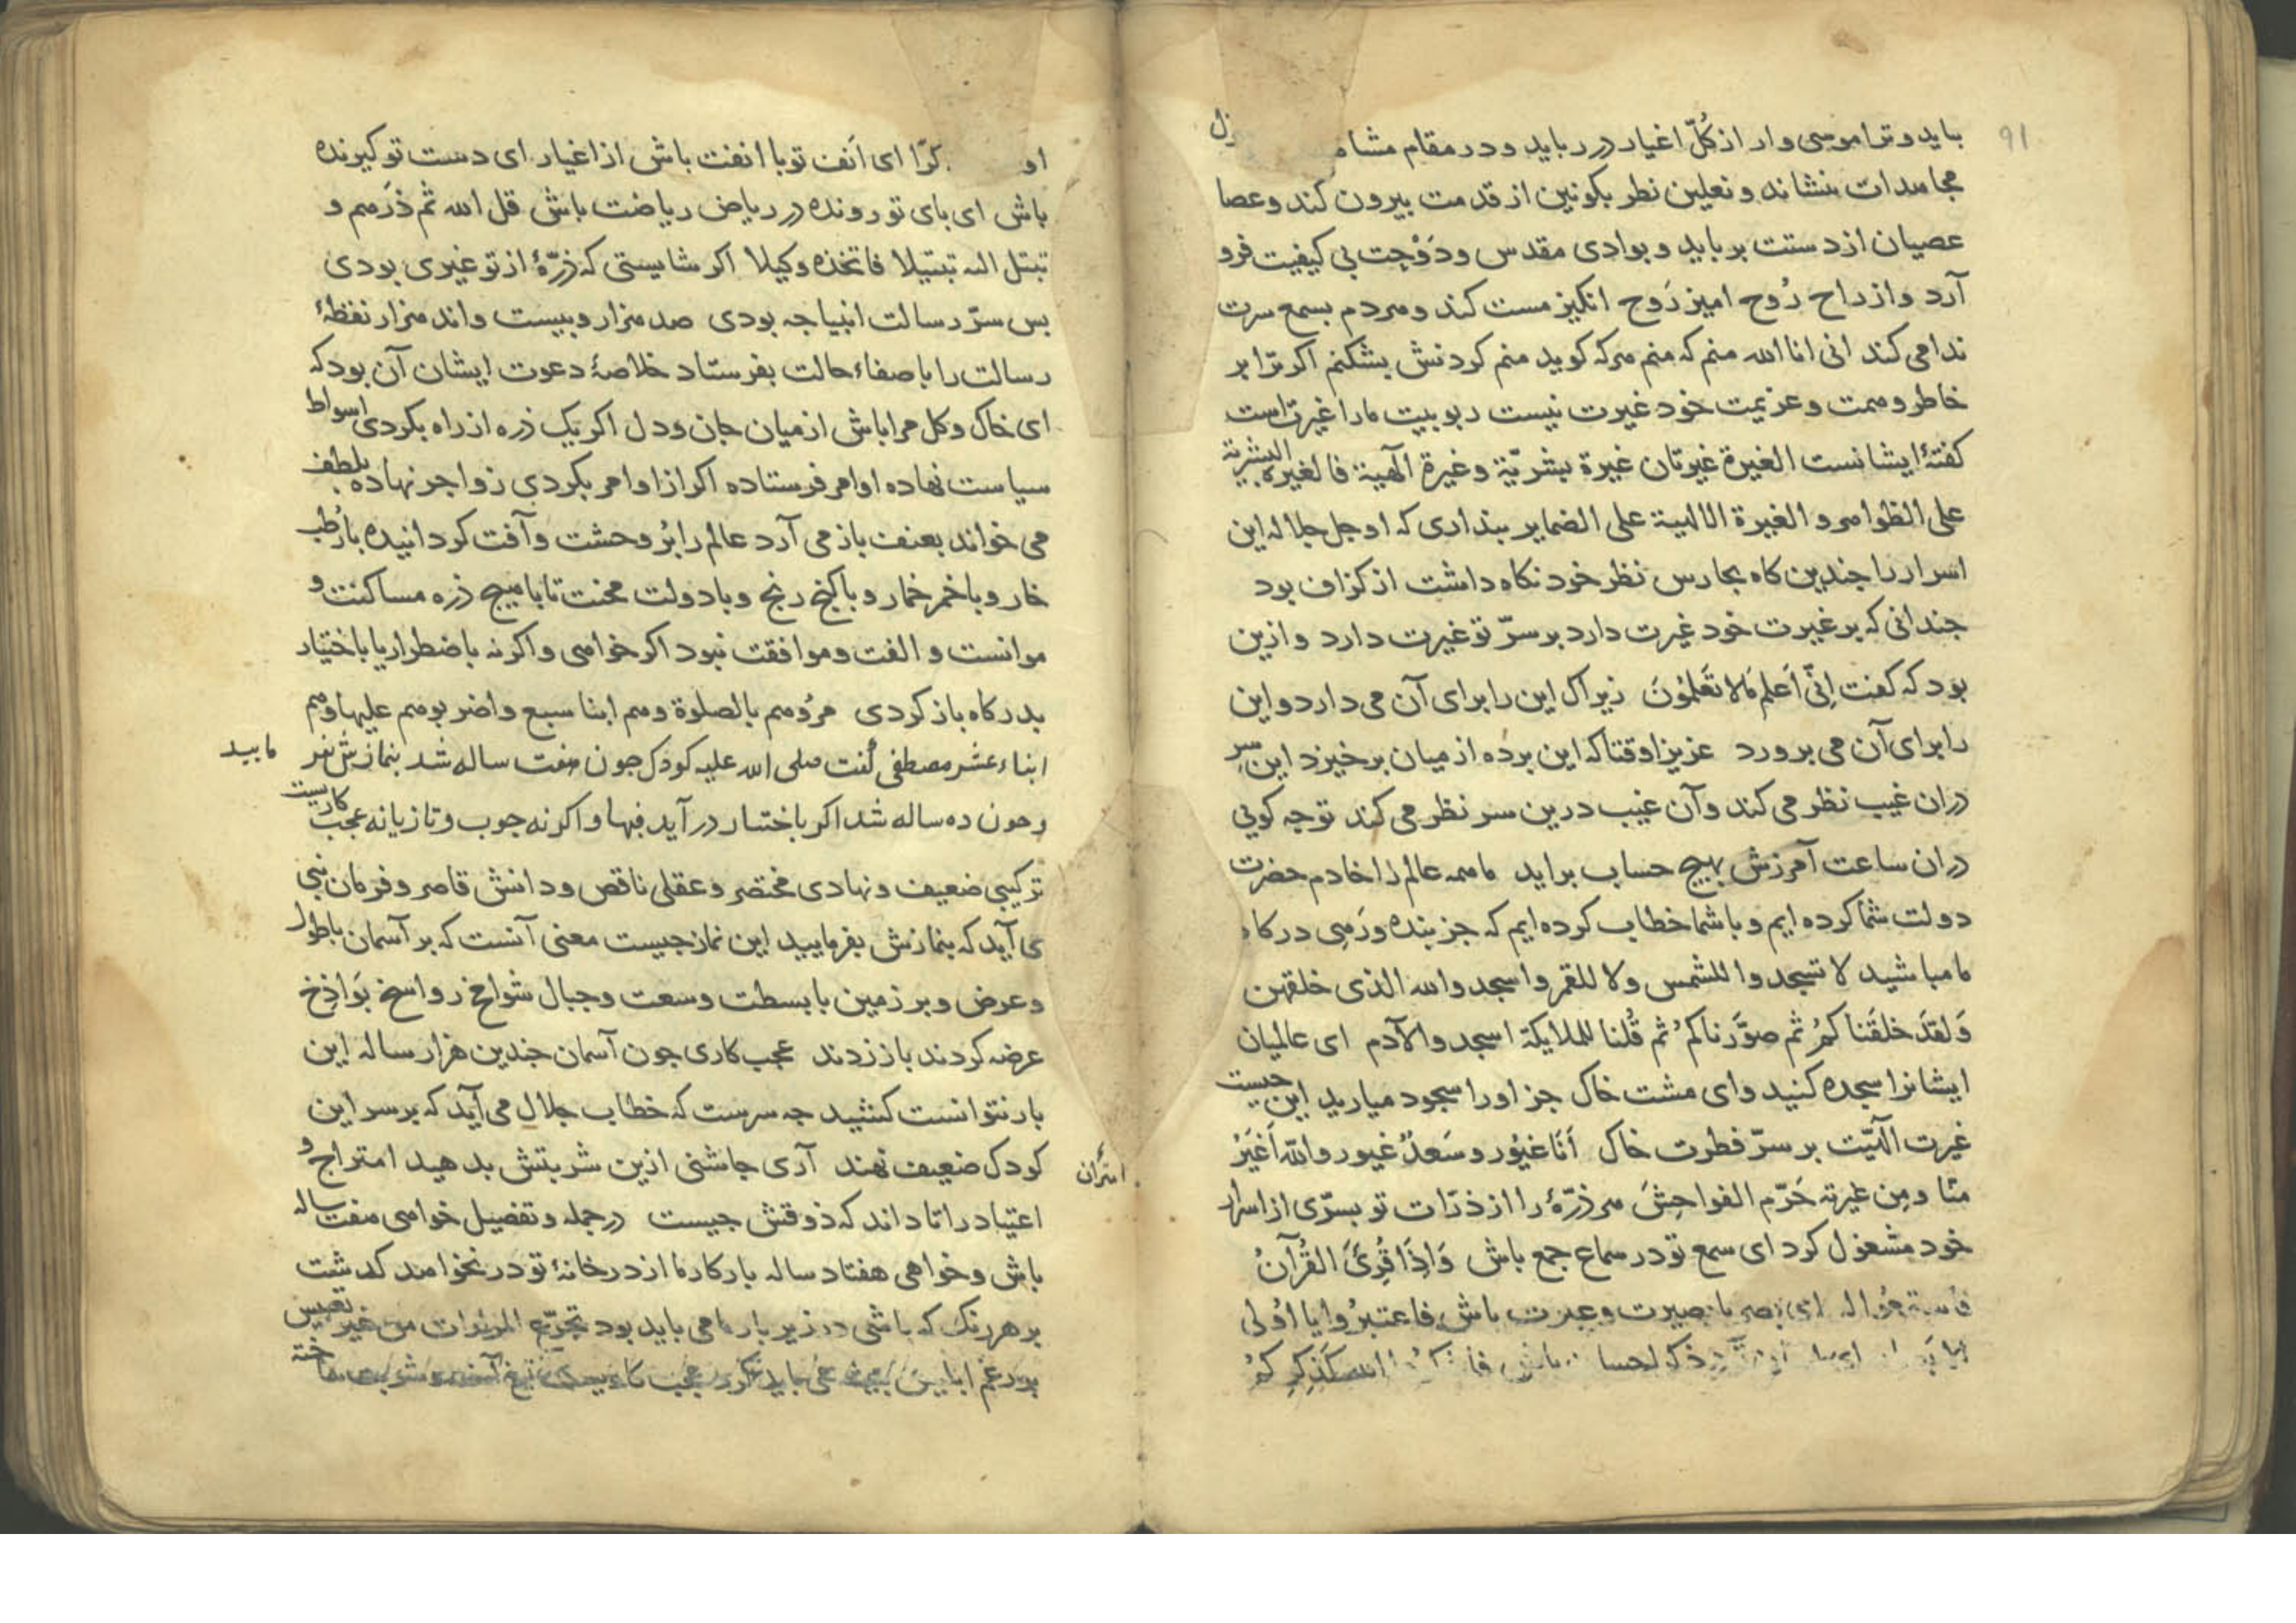 ۹۱
بباید و ترا موسی وار از کُلّ اغیار در رباید و در مقام مشا
مجاهدات بنشاند و نعلین نظر بکونین از قدمت بیرون کند و عصا
عصیان از دستت برباید و بوادی مقدس ودَوْجت بی کیفیت فرو
آرد و از راح رُوح امیز رَوح انکیز مست کند و هردم بسمع سرت
ندا می کند انی انا الله منم که منم هرکه کوید منم کردنش بشکنم اکر ترا بر
خاطر و همت و عزیمت خود غیرت نیست ربوبیت ما را غیرت است
کفتهٔ ایشانست الغیرة غیرتان غیرة بشریّة وغیرة الٓهیة فالغیرة البشریة
علی الظواهر و الغیرة الالهیة علی الضمایر بنداری که او جل جلاله این
اسرار را جندین کاه بحارس نظر خود نکاه داشت از کزاف بود
جندانی که بر غیرت خود غیرت دارد بر سرّ تو غیرت دارد و ازین
بود که کفت اِنّی اَعلم مَا لا تَعلَمُونَ زیراک این را برای آن می دارد و این
را برای آن می برورد عزیزا وقتاکه این برده از میان برخیزد این سر
دران غیب نظر می کند و آن غیب درین سر نظر می کند توجه کویی
دران ساعت آمرزش بهیج حساب براید ما همه عالم را خادم حضرت
دولت شما کرده ایم و با شما خطاب کرده ایم که جز بنده ورَهِی درکاه
ما مباشید لا تسجدوا للشمس ولا للقمر واسجدوا لله الذی خلقهن
وَلقَد خلقَنا کمُ ثم صوَّرناکمُ ثم قُلنا للملایکة اسجدوا لآدم ای عالمیان
ایشانرا سجده کنید و ای مشت خاک جز او را سجود میارید این جیست
غیرت الٓهیّت بر سرّ فطرت خاک اَنَا غیُور وسَعدٌ غیور والله اَغیَرُ
منّا ومِن غیرته حَرّم الفواحِشَ هر ذرّهٔ را از ذرّات تو بسرّی از اسرار
خود مشغول کرد ای سمع تو در سماع جمع باش وَاِذَا قُرِئَ القُرآنُ
فاستمعُوا له ای بصر با بصیرت و عبرت باش فاعتبرُوا یا اُولی
الله کَذِکرِکمُ
او کرّا ای اَنف تو با انفت باش از اغیار ای دست تو کیرنده
باش ای بای تو رونده در ریاض ریاضت باش قل الله ثم ذَرهم و
تبتل الیه تبتیلا فاتخذه وکیلا اکر شایستی که ذرّهٔ از تو غیری بودی
بس سرّ رسالت انبیا جه بودی صد هزار و بیست و اند هزار نقطهٔ
رسالت را با صفاء حالت بفرستاد خلاصهٔ دعوت ایشان آن بود که
ای خاک و کل مرا باش از میان جان و دل اکر یک ذره از راه بکردی اسواط
سیاست نهاده اوامر فرستاده اکر از اوامر بکردی زواجر نهاده بلطف
می خواند بعنف باز می آرد عالم را بُر وحشت و آفت کردانیده با رُطب
خار و با خمر خمار و با کنج رنج و با دولت محنت تا با هیج ذره مساکنت و
موانست و الفت و موافقت نبود اکر خواهی و اکر نه باضطرار یا باختیار
بدرکاه باز کردی مرُوهم بالصلوة وهم ابنا سبع واضربوهم علیها وهم
ابناء عشر مصطفی کفت صلی الله علیه کودک جون هفت ساله شد بنمازش فر
مایید
وجون ده ساله شد اکر باختیار درآید فبها و اکر نه جوب و تازیانه عجب کاریست
ترکیبی ضعیف و نهادی مختصر و عقلی ناقص و دانش قاصر و فرمان نبی
می آید که بنمازش بفرمایید این نماز جیست معنی آنست که بر آسمان با طول
و عرض و بر زمین با بسطت و سعت و جبال شوامخ رواسخ بَواذخ
عرضه کردند باز زدند عجب کاری جون آسمان جندین هزار ساله این
بار نتوانست کشید جه سرست که خطاب جلال می آید که بر سر این
کودک ضعیف نهند آری جاشنی ازین شربتش بدهید امتراج و
اعتیاد را تا داند که ذوقش جیست در جمله و تفصیل خواهی هفت ساله
باش و خواهی هفتاد ساله بار کار ما از در خانهٔ تو در نخواهد کذشت
بر هر رنک که باشی در زیر بار ما می باید بود تجرّع المرارات من غیر تعبیس